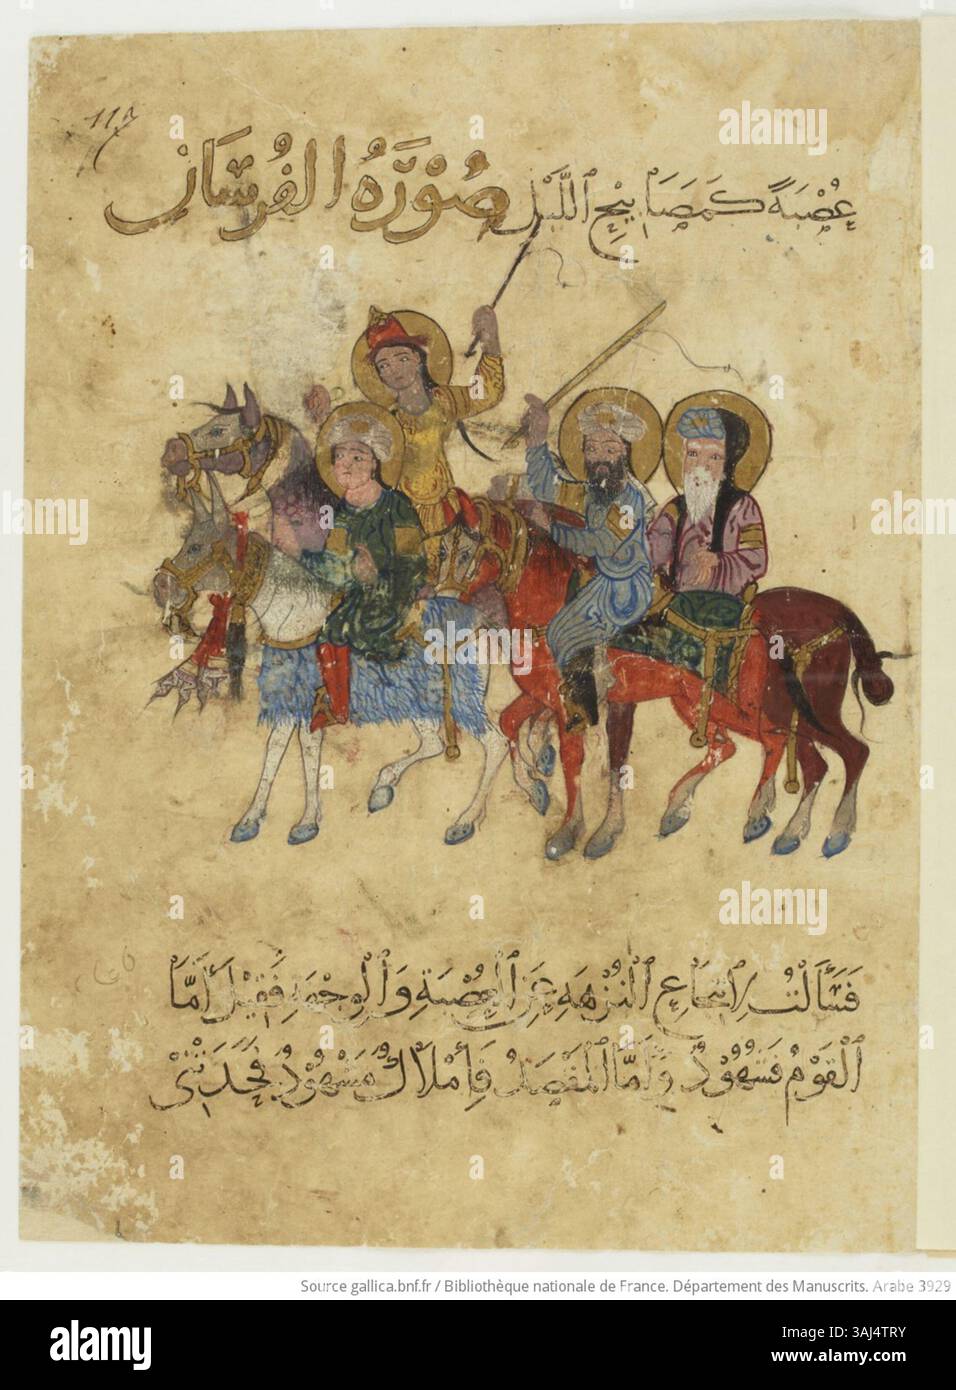 عُصْبَةً كَمَصَابِيْحِ اللَّيْلِ صُوْرَةُ الفُرسَان
فَسَأَلْتُ لِانْتِجَاعِ النُزْهَةِ عَنِ العُصْبَةِ وَالْوِجْهَةِ فَقِيْلَ أَمَّا
القَوْمُ فَشُهُوْدٌ وَأَمَّا المَقْصَدُ فَإِمْلَاكٌ مَشْهُوْدٌ فَحَدَتْنِي
alamy
alamy
alamy
Source gallica.bnf.fr / Bibliothèque nationale de France. Département des Manuscrits. Arabe 3929
alamy
Image ID: 3AJ4TRY
www.alamy.com